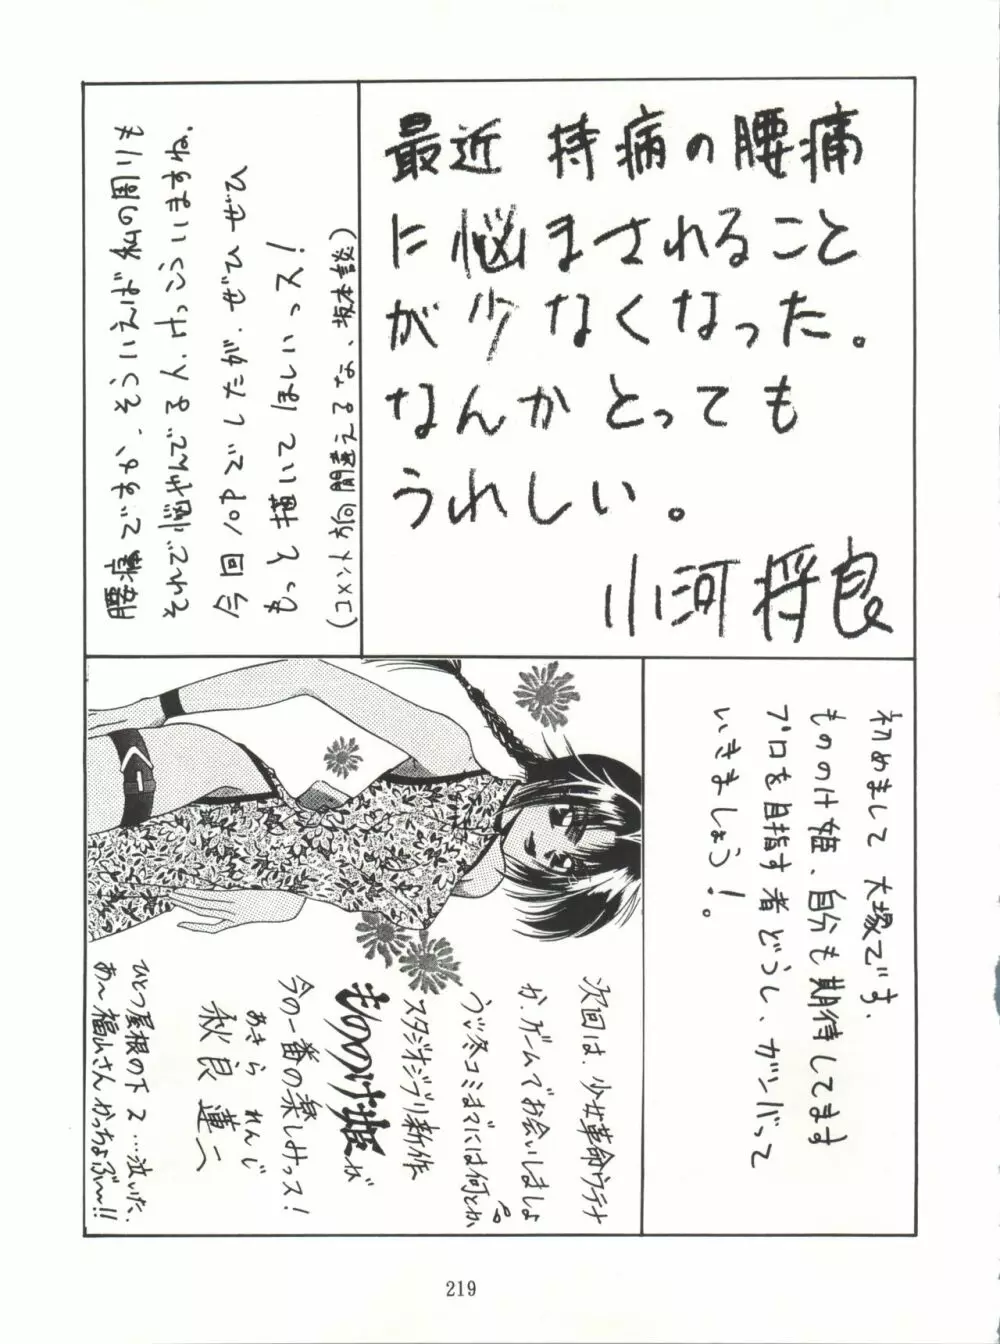 最近 持病の腰痛
に悩まされること
が少なくなった。
なんかとっても
うれしい。
小河将良
腰痛ですか、そういえば私の周りも
それで悩やんでる人、けっこういますね。
今回10Pでしたが、ぜひぜひ
もっと描いてほしいっス!
(コメント方向間違えるな、坂本談)
初めまして大塚です。
もののけ姫、自分も期待してます
プロを目指す者どうし、ガンバって
いきましょう!。
次回は、少女革命ウテナ
か、ゲームでお会いしましょ
う♡冬コミまでには何とか
スタジオジブリ新作
もののけ姫が
今の一番の楽しみっス!
あきら れんじ
秋良 蓮二
ひとつ屋根の下2…泣いた。
あ〜福山さんかっちょぶ〜!!
219